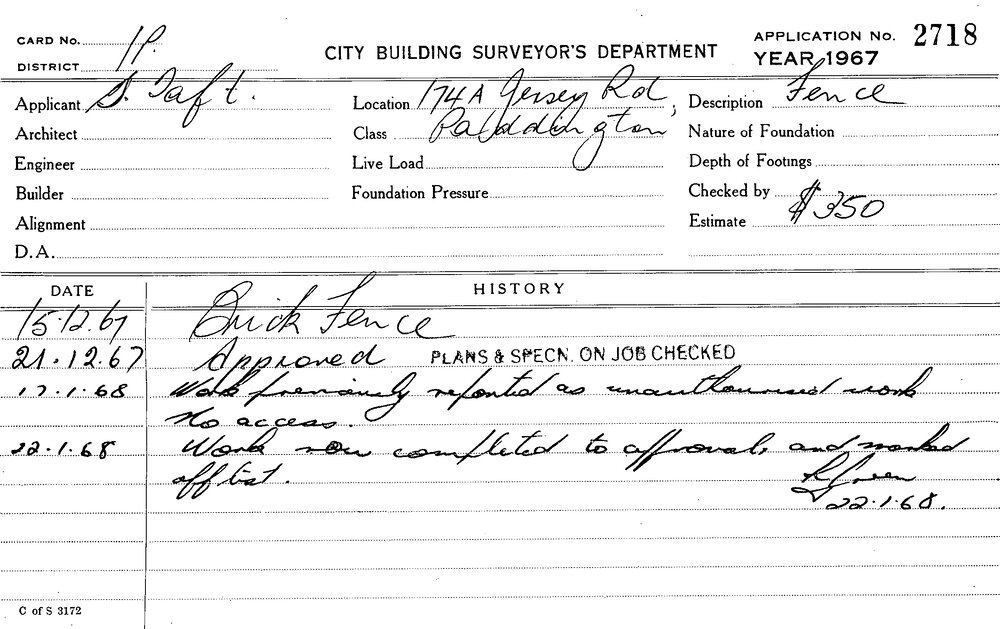 CARD No. 1P. APPLICATION No. 2718
DISTRICT CITY BUILDING SURVEYOR'S DEPARTMENT YEAR 1967
Applicant S. Taft. Location 174A Jersey Rd, Description Fence
Architect Class Padddington Nature of Foundation
Engineer Live Load Depth of Footings
Builder Foundation Pressure Checked by
Alignment Estimate $350
D.A.
DATE HISTORY
15.12.67 Brick Fence
21.12.67 Approved PLANS & SPECN. ON JOB CHECKED
17.1.68 Work previously reported as unauthourised work
No access.
22.1.68 Work now completed to approval, and marked
off list.
22.1.68.
C of S 3172